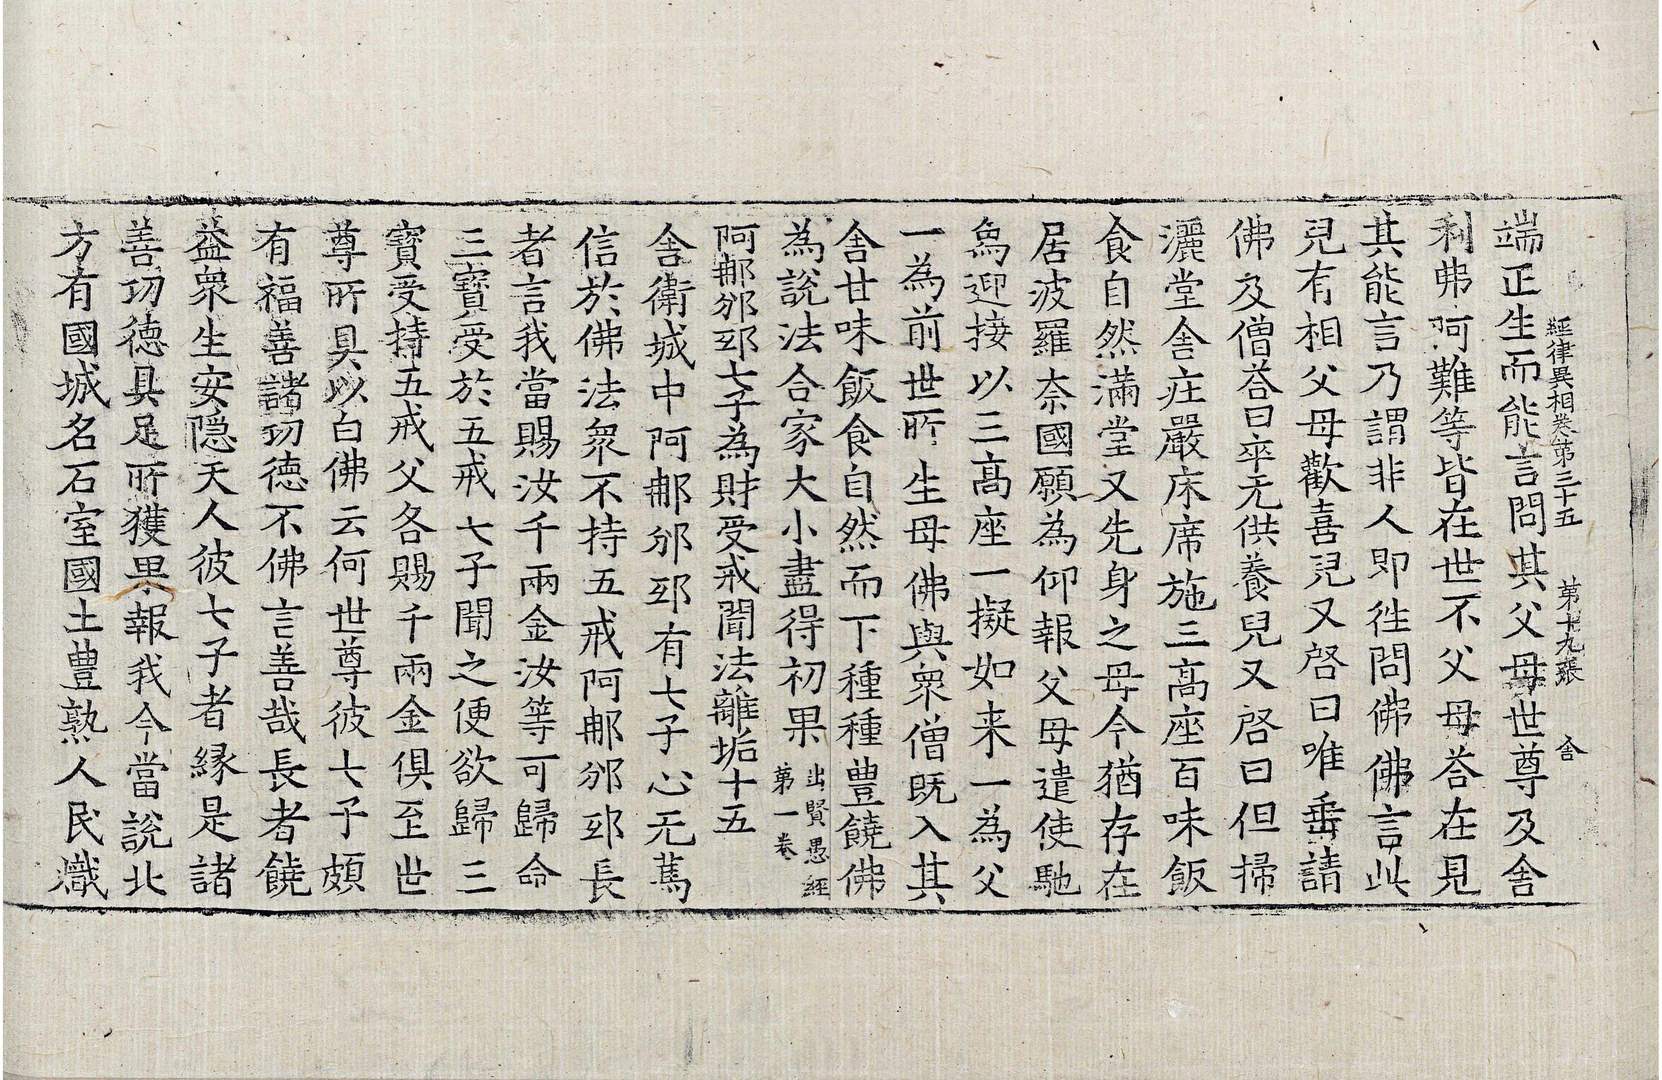 經律異相卷第三十五 第十九張 舍
端正生而能言問其父母世尊及舍
利弗阿難等皆在世不父母荅在見
其能言乃謂非人即徃問佛佛言此
兒有相父母歡喜兒又啓曰唯垂請
佛及僧荅曰卒无供養兒又啓曰但掃
灑堂舍庄嚴床席施三髙座百味飯
食自然滿堂又先身之母今猶存在
居波羅奈國願為仰報父母遣使馳
象迎接以三髙座一擬如来一為父
一為前世所生母佛與衆僧既入其
舍甘味飯食自然而下種種豊饒佛
為說法合家大小盡得初果 出賢愚經第一卷
阿𨚗邠邸七子為財受戒聞法離垢十五
舍衛城中阿𨚗邠邸有七子心无篤
信於佛法衆不持五戒阿𨚗邠邸長
者言我當賜汝千兩金汝等可歸命
三寶受於五戒七子聞之便欲歸三
寶受持五戒父各賜千兩金俱至世
尊所具以白佛云何世尊彼七子頗
有福善諸功德不佛言善哉長者饒
益衆生安隱天人彼七子者縁是諸
善功德具足所獲果報我今當說北
方有國城名石室國土豊熟人民熾